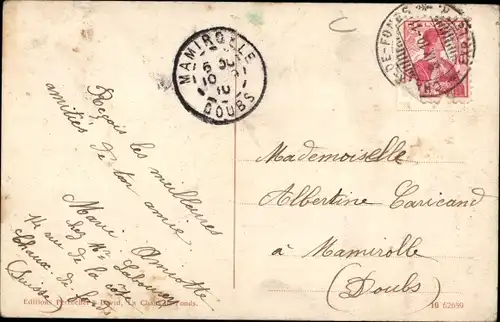 MAMIROLLE
10
DOUBS
DE-FONDS
Reçois les meilleures
amitiés de ton amie
Marie
chez Mr
14 rue de la côte
Chaux de fds
(Suisse)
Mademoiselle
Albertine Caricand
à Mamirolle
(Doubs)
Editions Perrochet & David, La Chaux-de-Fonds.
10 62699